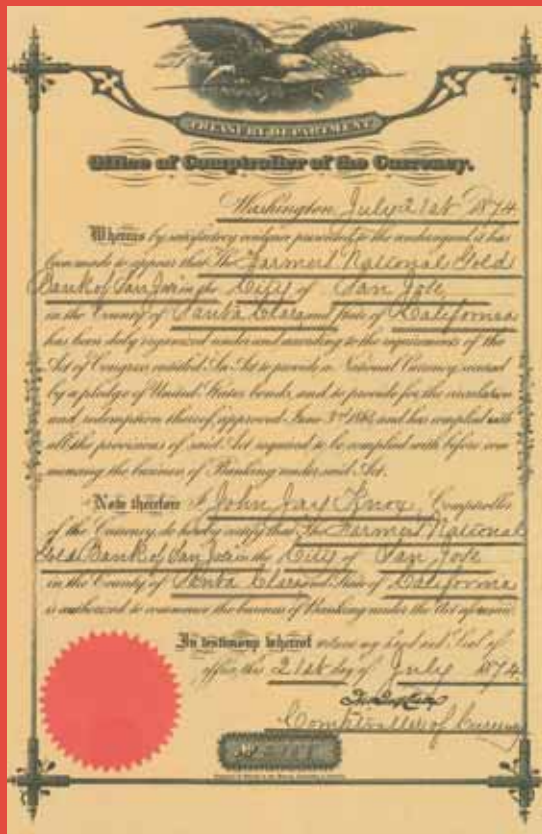 TREASURY DEPARTMENT
Office of Comptroller of the Currency.
Washington, July 21st 1874
Whereas by satisfactory evidence presented to the undersigned, it has
been made to appear that The Farmers National Gold
Bank of San Jose in the City of San Jose
in the County of Santa Clara and State of California
has been duly organized under and according to the requirements of the
Act of Congress entitled "An Act to provide a National Currency, secured
by a pledge of United States bonds, and to provide for the circulation
and redemption thereof, approved June 3rd 1864, and has complied with
all the provisions of said Act required to be complied with before com
mencing the business of Banking under said Act.
Now therefore I John Jay Knox, Comptroller
of the Currency, do hereby certify that The Farmers National
Gold Bank of San Jose in the City of San Jose
in the County of Santa Clara and State of California
is authorized to commence the business of Banking under the Act aforesaid.
In testimony whereof witness my hand and Seal of
office this 21st day of July 1874
Jno Jay Knox
Comptroller of Currency